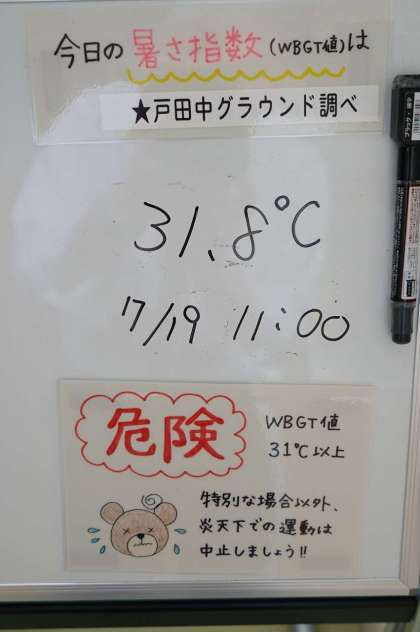 今日の 暑さ指数(WBGT値)は
★戸田中グラウンド調べ
31.8℃
7/19 11:00
危険
WBGT値
31℃以上
特別な場合以外、
炎天下での運動は
中止しましょう!!